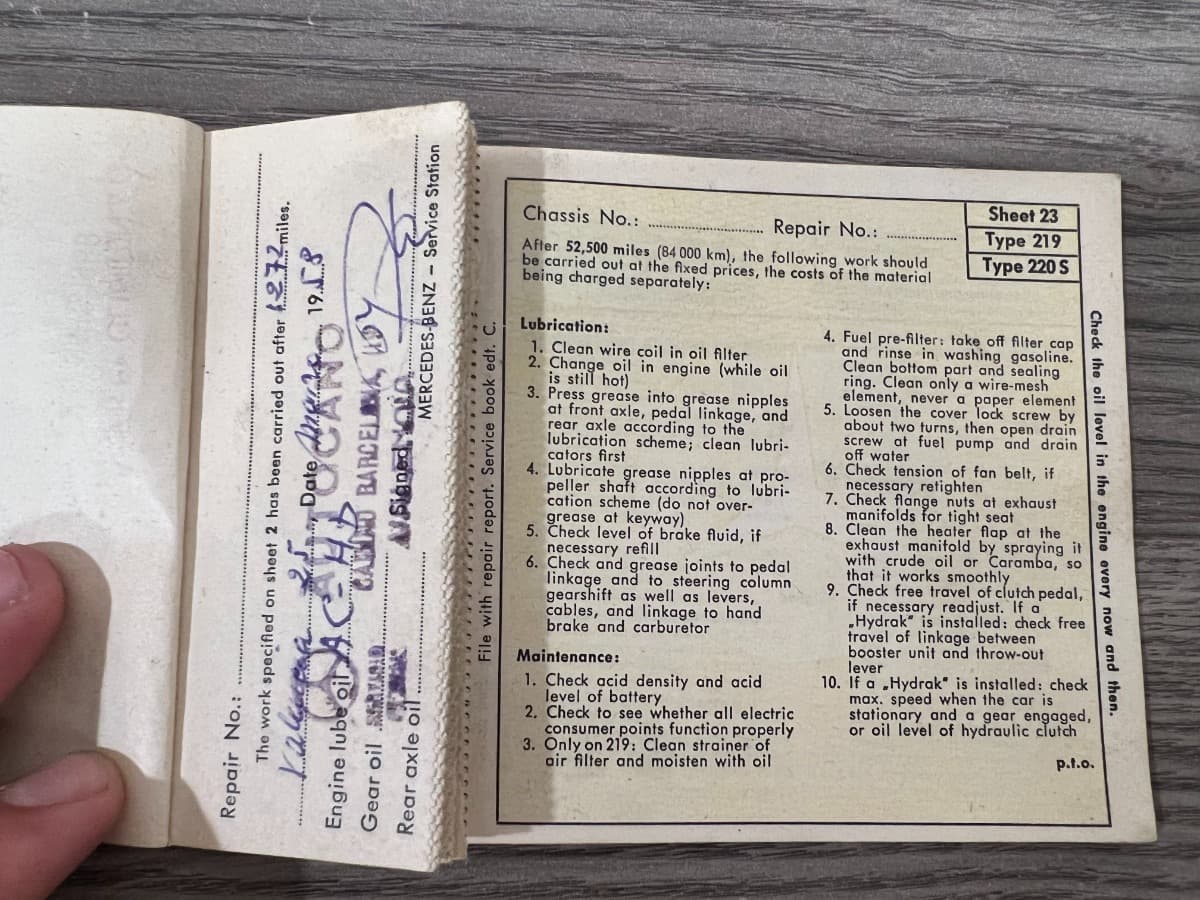 Repair No.: ........
The work specified on sheet 2 has been carried out after 1272 miles.
Valencia 25, Date 1958
AUTOCANO
Engine lube oil
Gear oil
CAMINO BARCELONA,
Signed
Rear axle oil
MERCEDES-BENZ – Service Station
File with repair report. Service book edt. C.
Chassis No.: ........ Repair No.: ........
Sheet 23
Type 219
Type 220 S
After 52,500 miles (84 000 km), the following work should
be carried out at the fixed prices, the costs of the material
being charged separately:
Lubrication:
1. Clean wire coil in oil filter
2. Change oil in engine (while oil
is still hot)
3. Press grease into grease nipples
at front axle, pedal linkage, and
rear axle according to the
lubrication scheme; clean lubri-
cators first
4. Lubricate grease nipples at pro-
peller shaft according to lubri-
cation scheme (do not over-
grease at keyway)
5. Check level of brake fluid, if
necessary refill
6. Check and grease joints to pedal
linkage and to steering column
gearshift as well as levers,
cables, and linkage to hand
brake and carburetor
Maintenance:
1. Check acid density and acid
level of battery
2. Check to see whether all electric
consumer points function properly
3. Only on 219: Clean strainer of
air filter and moisten with oil
4. Fuel pre-filter: take off filter cap
and rinse in washing gasoline.
Clean bottom part and sealing
ring. Clean only a wire-mesh
element, never a paper element
5. Loosen the cover lock screw by
about two turns, then open drain
screw at fuel pump and drain
off water
6. Check tension of fan belt, if
necessary retighten
7. Check flange nuts at exhaust
manifolds for tight seat
8. Clean the heater flap at the
exhaust manifold by spraying it
with crude oil or Caramba, so
that it works smoothly
9. Check free travel of clutch pedal,
if necessary readjust. If a
„Hydrak" is installed: check free
travel of linkage between
booster unit and throw-out
lever
10. If a „Hydrak" is installed: check
max. speed when the car is
stationary and a gear engaged,
or oil level of hydraulic clutch
p.t.o.
Check the oil level in the engine every now and then.